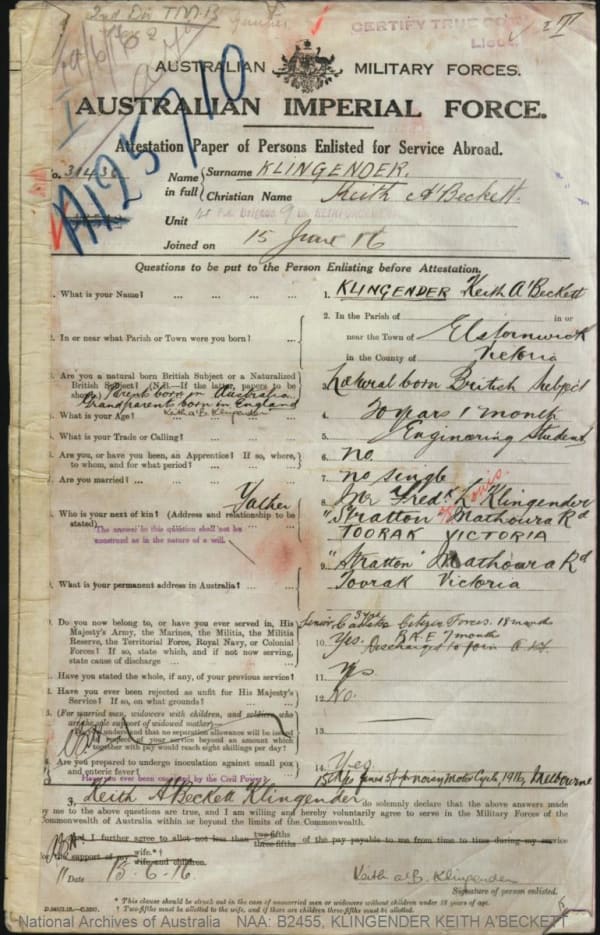 2nd Div TMB
Gunner
CERTIFY TRUE COPY
Lieut.
AUSTRALIAN MILITARY FORCES.
AUSTRALIAN IMPERIAL FORCE.
A125710
Attestation Paper of Persons Enlisted for Service Abroad.
No. 31430
Name in full
Surname KLINGENDER.
Christian Name Keith A'Beckett.
Unit
Joined on 15 June 16
Questions to be put to the Person Enlisting before Attestation.
1. What is your Name? ... 1. KLINGENDER Keith A'Beckett
2. In or near what Parish or Town were you born? ... 2. In the Parish of in or
near the Town of Elsternwick
in the County of Victoria
3. Are you a natural born British Subject or a Naturalized
British Subject? (N.B.—If the latter, papers to be
shown) 3. Natural born British Subject
Parents born in Australia
Grandparents born in England
Keith a'B. Klingender
4. What is your Age? 4. 20 years 1 month
5. What is your Trade or Calling? ... 5. Engineering Student
6. Are you, or have you been, an Apprentice? If so, where,
to whom, and for what period? ... 6. no.
7. Are you married? ... 7. no single
8. Who is your next of kin? (Address and relationship to be
stated) Father 8. Mr Fredk L Klingender
Louis.
"Stratton" Mathoura Rd
TOORAK VICTORIA
The answer to this question shall not be
construed as in the nature of a will.
9. What is your permanent address in Australia? ... 9. "Stratton" Mathoura Rd
Toorak Victoria
10. Do you now belong to, or have you ever served in, His
Majesty's Army, the Marines, the Militia, the Militia
Reserve, the Territorial Force, Royal Navy, or Colonial
Forces? If so, state which, and if not now serving,
state cause of discharge ...
Senior Cadets 3 yrs Citizen Forces. 18 months
10. Yes. R.A.E 7 months
Discharged to join A.I.F.
11. Have you stated the whole, if any, of your previous service? 11. Yes
12. Have you ever been rejected as unfit for His Majesty's
Service? If so, on what grounds? ... 12. No.
13. (For married men, widowers with children, and soldiers who
are the sole support of widowed mother)
Do you understand that no separation allowance will be issued
in respect of your service beyond an amount which
together with pay would reach eight shillings per day? 13.
14. Are you prepared to undergo inoculation against small pox
and enteric fever? 14. Yes
Have you ever been convicted by the Civil Power? 15. Yes fined 5/- for noisy Motor Cycle, 1916, Melbourne
I, Keith A'Beckett Klingender do solemnly declare that the above answers made
by me to the above questions are true, and I am willing and hereby voluntarily agree to serve in the Military Forces of the
Commonwealth of Australia within or beyond the limits of the Commonwealth.
And I further agree to allot not less than two-fifths three-fifths of the pay payable to me from time to time during my service
for the support of my wife.*†
wife and children.
Date 15-6-16
Keith a'B. Klingender
Signature of person enlisted.
* This clause should be struck out in the case of unmarried men or widowers without children under 18 years of age.
† Two-fifths must be allotted to the wife, and if there are children three-fifths must be allotted.
National Archives of Australia NAA: B2455, KLINGENDER KEITH A'BECKETT